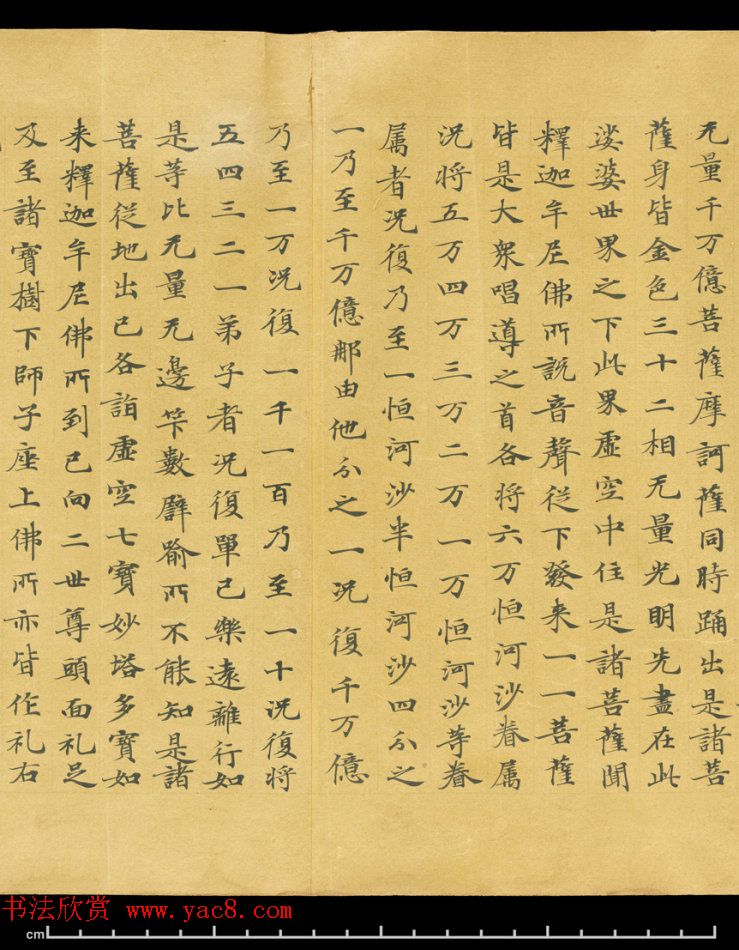 无量千万億菩薩摩訶薩同時踊出是諸菩
薩身皆金色三十二相无量光明先盡在此
娑婆世界之下此界虛空中住是諸菩薩聞
釋迦牟尼佛所說音聲從下發来一一菩薩
皆是大衆唱導之首各将六万恒河沙眷属
况将五万四万三万二万一万恒河沙等眷
属者况復乃至一恒河沙半恒河沙四分之
一乃至千万億那由他分之一况復千万億
乃至一万况復一千一百乃至一十况復将
五四三二一弟子者况復單己樂遠離行如
是等比无量无邊筭數譬喻所不能知是諸
菩薩從地出已各詣虛空七寶妙塔多寶如
来釋迦牟尼佛所到已向二世尊頭面礼足
及至諸寶樹下師子座上佛所亦皆作礼右
书法欣赏 www.yac8.com
cm